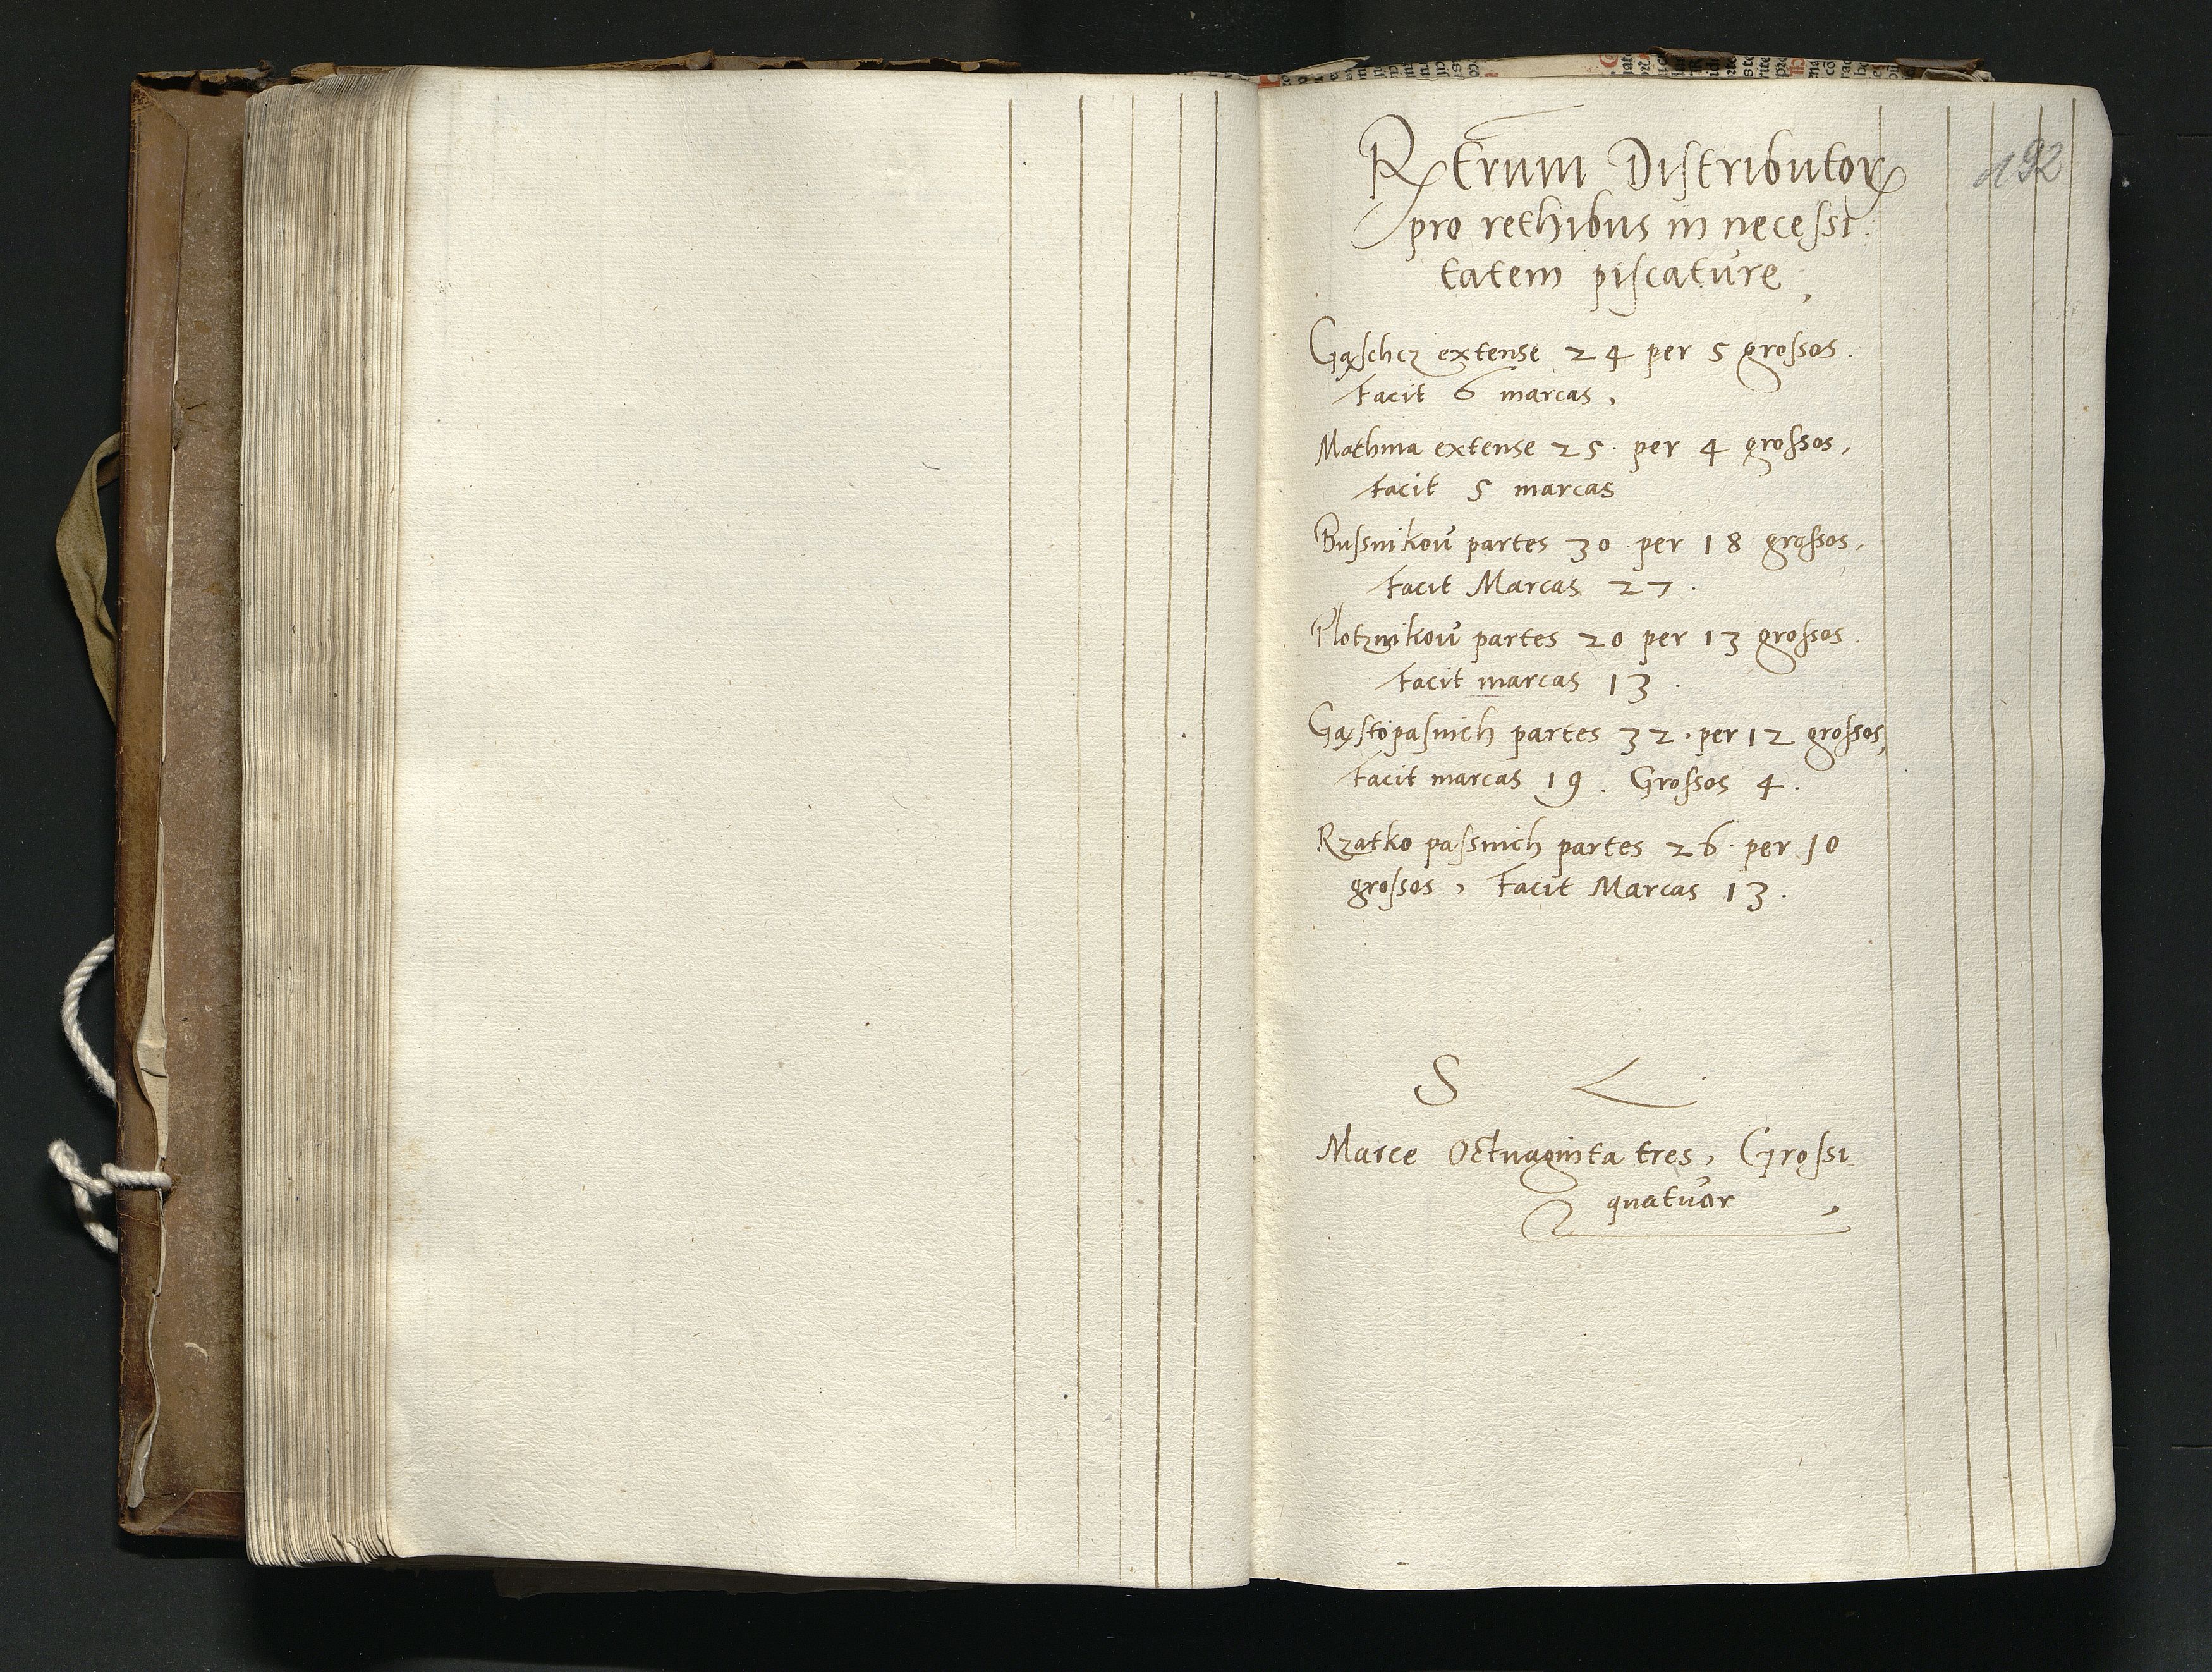 192
Rerum Distributor
pro rethibus in necessi
tatem piscature
Gąschcz extense 24 per 5 grossos.
Facit 6 marcas,
Mathnia extense 25. per 4 grossos,
facit 5 marcas
Bussnikow partes 30 per 18 grossos,
Facit Marcas 27.
Plotznikow partes 20 per 13 grossos.
Facit marcas 13.
Gąstopasnich partes 32. per 12 grossos,
Facit marcas 19. Grossos 4.
Rzatko passnich partes 26. per 10
grossos, Facit Marcas 13.
S
Marce Octuaginta tres, Grossi
quatuor